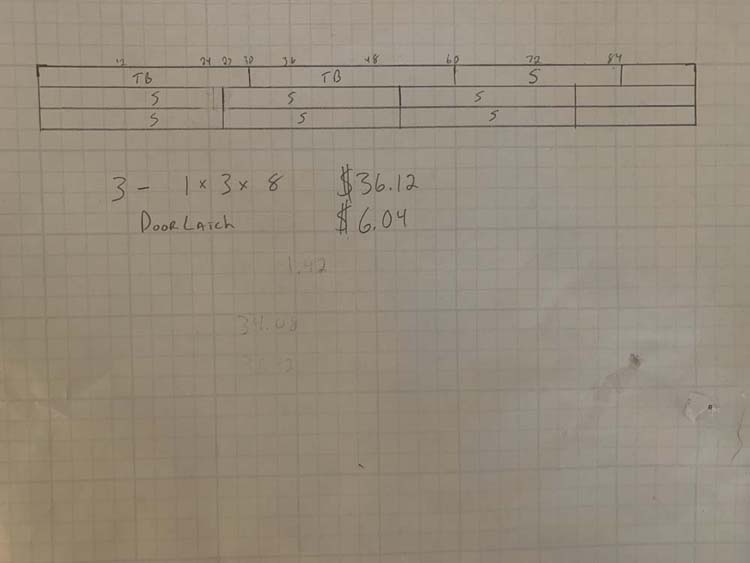 12 24 27 30 36 48 60 72 84
TB TB S
S S S
S S S
3 - 1 x 3 x 8 $36.12
DOOR LATCH $6.04
1.42
34.08